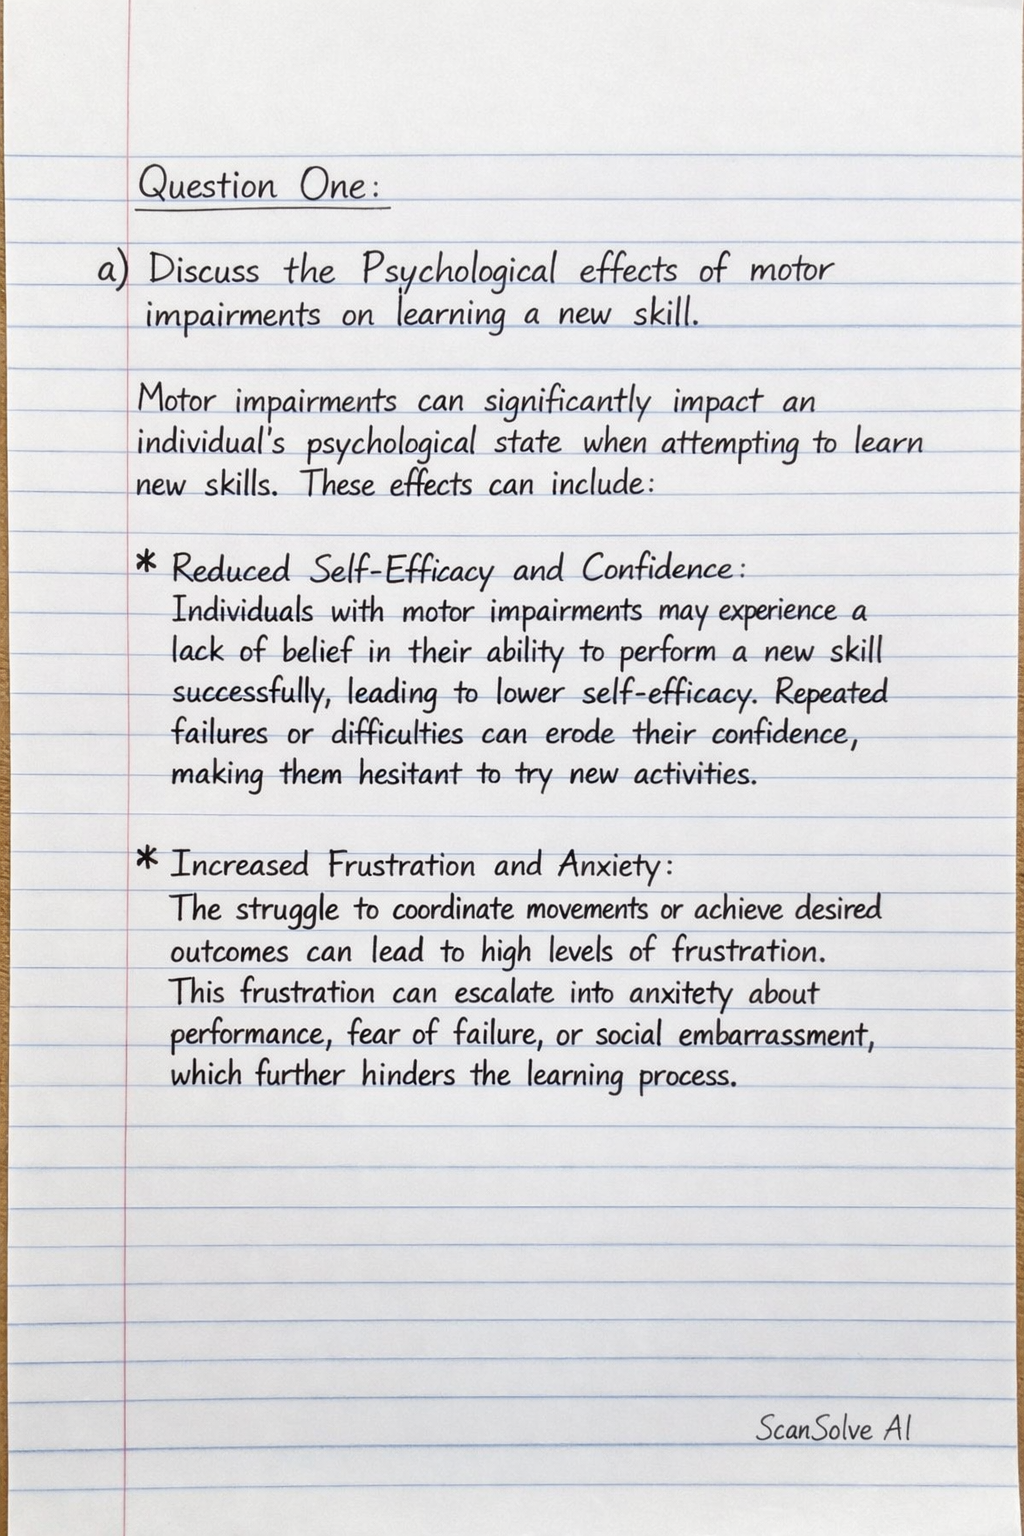 Question One:
a) Discuss the Psychological effects of motor
impairments on learning a new skill.
Motor impairments can significantly impact an
individual's psychological state when attempting to learn
new skills. These effects can include:
* Reduced Self-Efficacy and Confidence:
Individuals with motor impairments may experience a
lack of belief in their ability to perform a new skill
successfully, leading to lower self-efficacy. Repeated
failures or difficulties can erode their confidence,
making them hesitant to try new activities.
* Increased Frustration and Anxiety:
The struggle to coordinate movements or achieve desired
outcomes can lead to high levels of frustration.
This frustration can escalate into anxitety about
performance, fear of failure, or social embarrassment,
which further hinders the learning process.
ScanSolve AI